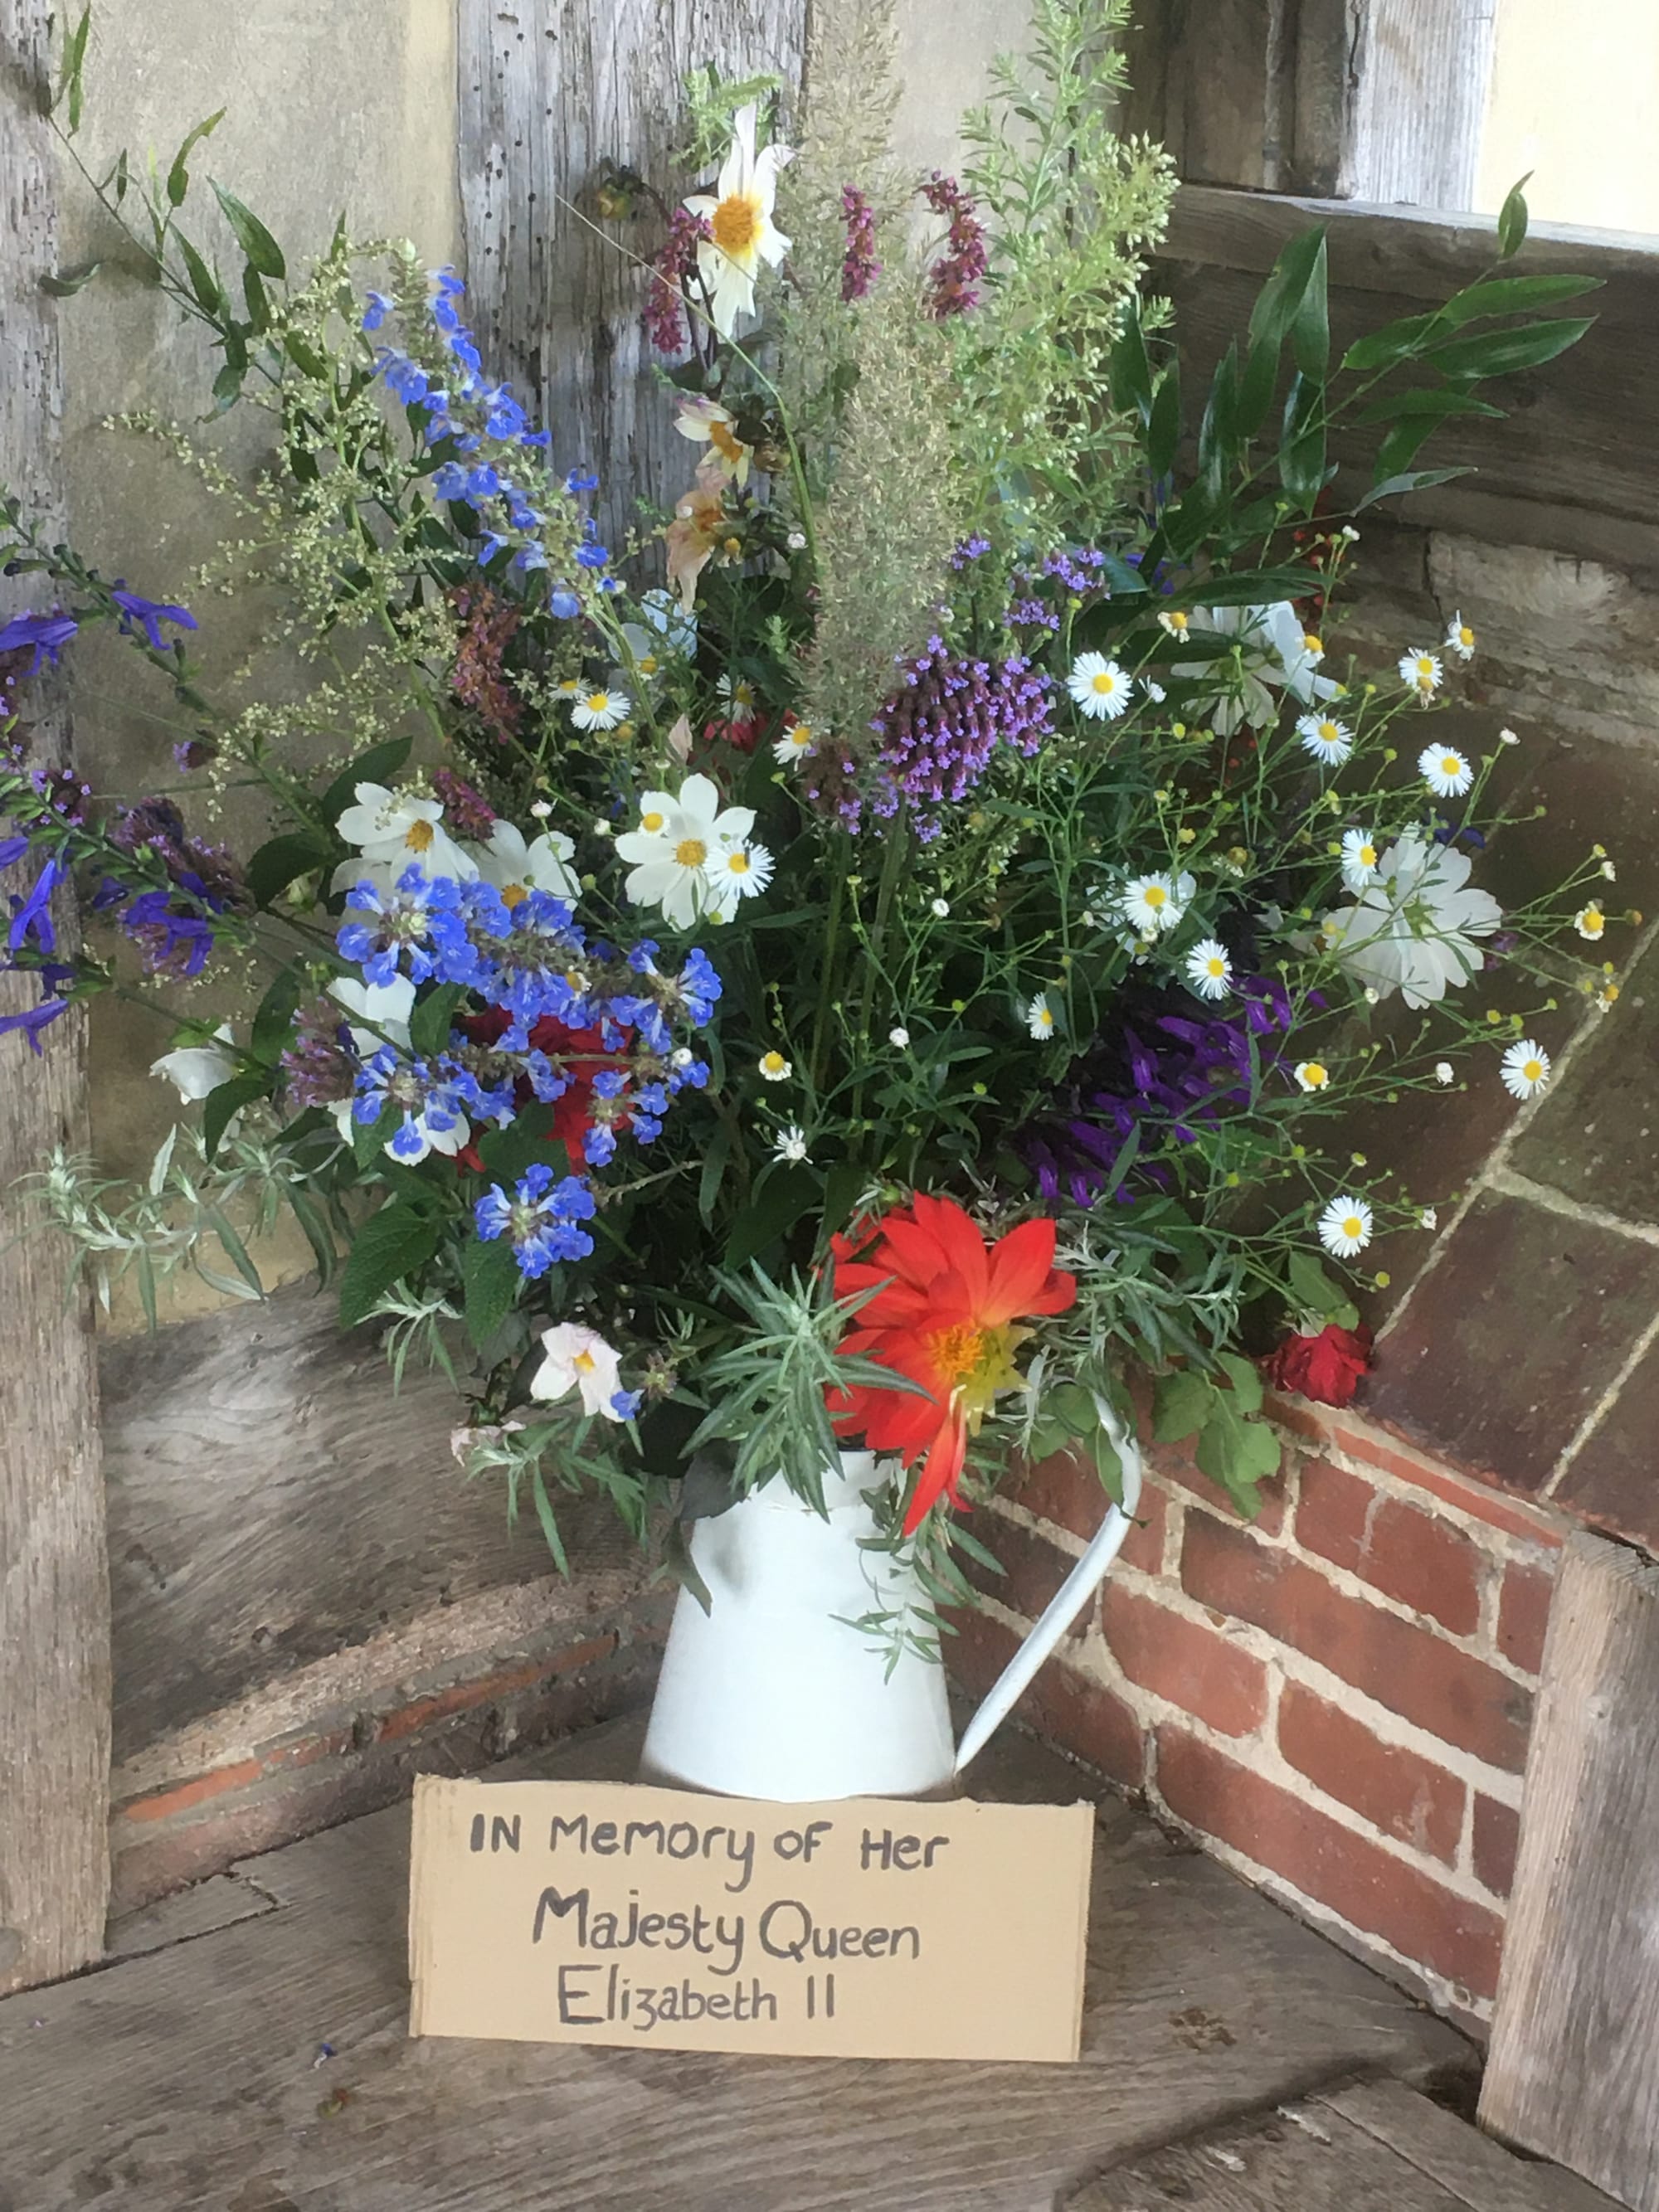 IN Memory of Her
Majesty Queen
Elizabeth II